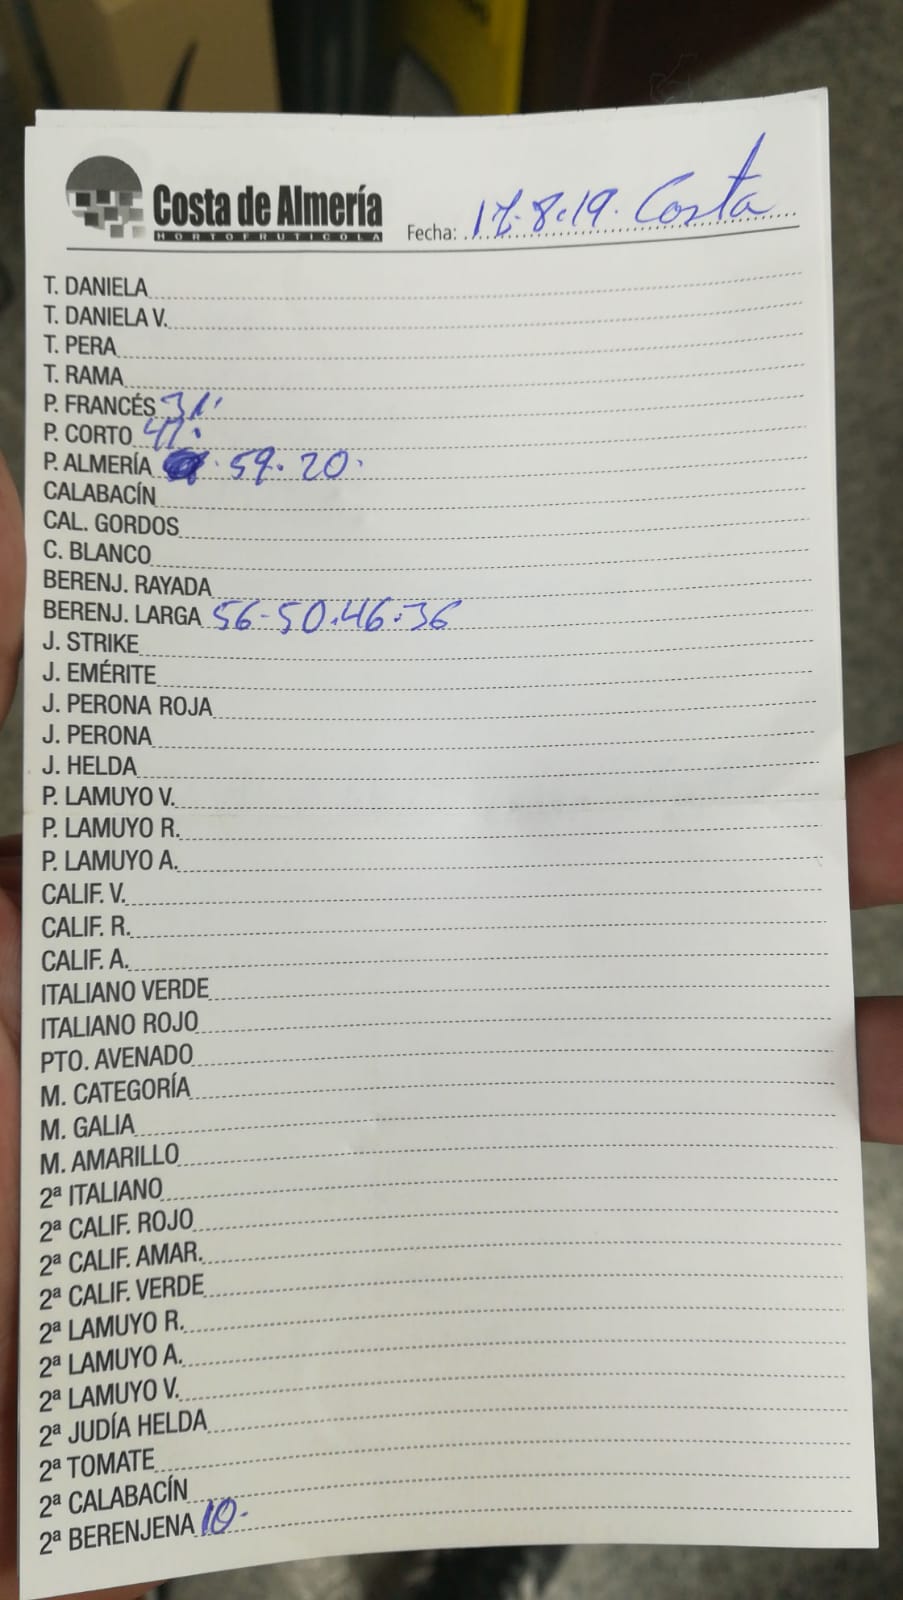 Costa de Almería
HORTOFRUTICOLA
Fecha: 17.8.19. Costa
T. DANIELA
T. DANIELA V.
T. PERA
T. RAMA
P. FRANCÉS 31'
P. CORTO 41.
P. ALMERÍA . 59. 20.
CALABACÍN
CAL. GORDOS
C. BLANCO
BERENJ. RAYADA
BERENJ. LARGA 56-50.46.36
J. STRIKE
J. EMÉRITE
J. PERONA ROJA
J. PERONA
J. HELDA
P. LAMUYO V.
P. LAMUYO R.
P. LAMUYO A.
CALIF. V.
CALIF. R.
CALIF. A.
ITALIANO VERDE
ITALIANO ROJO
PTO. AVENADO
M. CATEGORÍA
M. GALIA
M. AMARILLO
2ª ITALIANO
2ª CALIF. ROJO
2ª CALIF. AMAR.
2ª CALIF. VERDE
2ª LAMUYO R.
2ª LAMUYO A.
2ª LAMUYO V.
2ª JUDÍA HELDA
2ª TOMATE
2ª CALABACÍN
2ª BERENJENA 10.